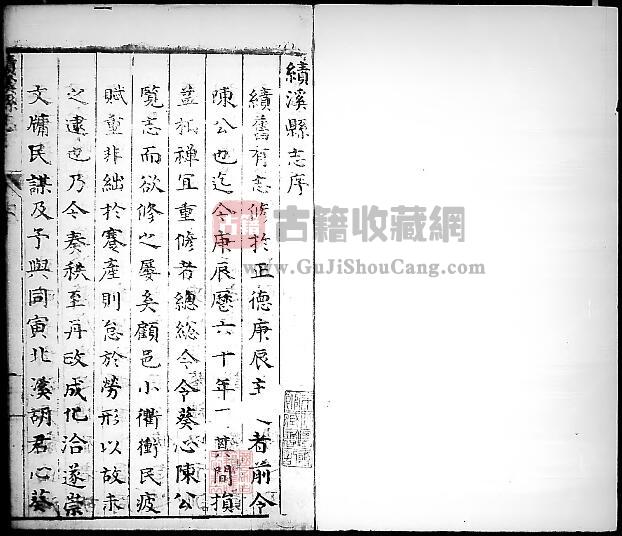 績溪縣志序
績舊有志修於正德庚辰主 者前令
陳公也迄今庚辰曆六十年 其間損
益私禪宜重修者總總今令葵心陳公
覧志而欲修之屡矣顧邑小衢衝民疲
賦重非絀於蹇產則怠於勞形以故未
之逮也乃今奏秩至再政成化洽遂崇
文牖民謀及予與同寅北溪胡君心葵
績溪縣志
古籍
古籍收藏網
www.GuJiShouCang.com